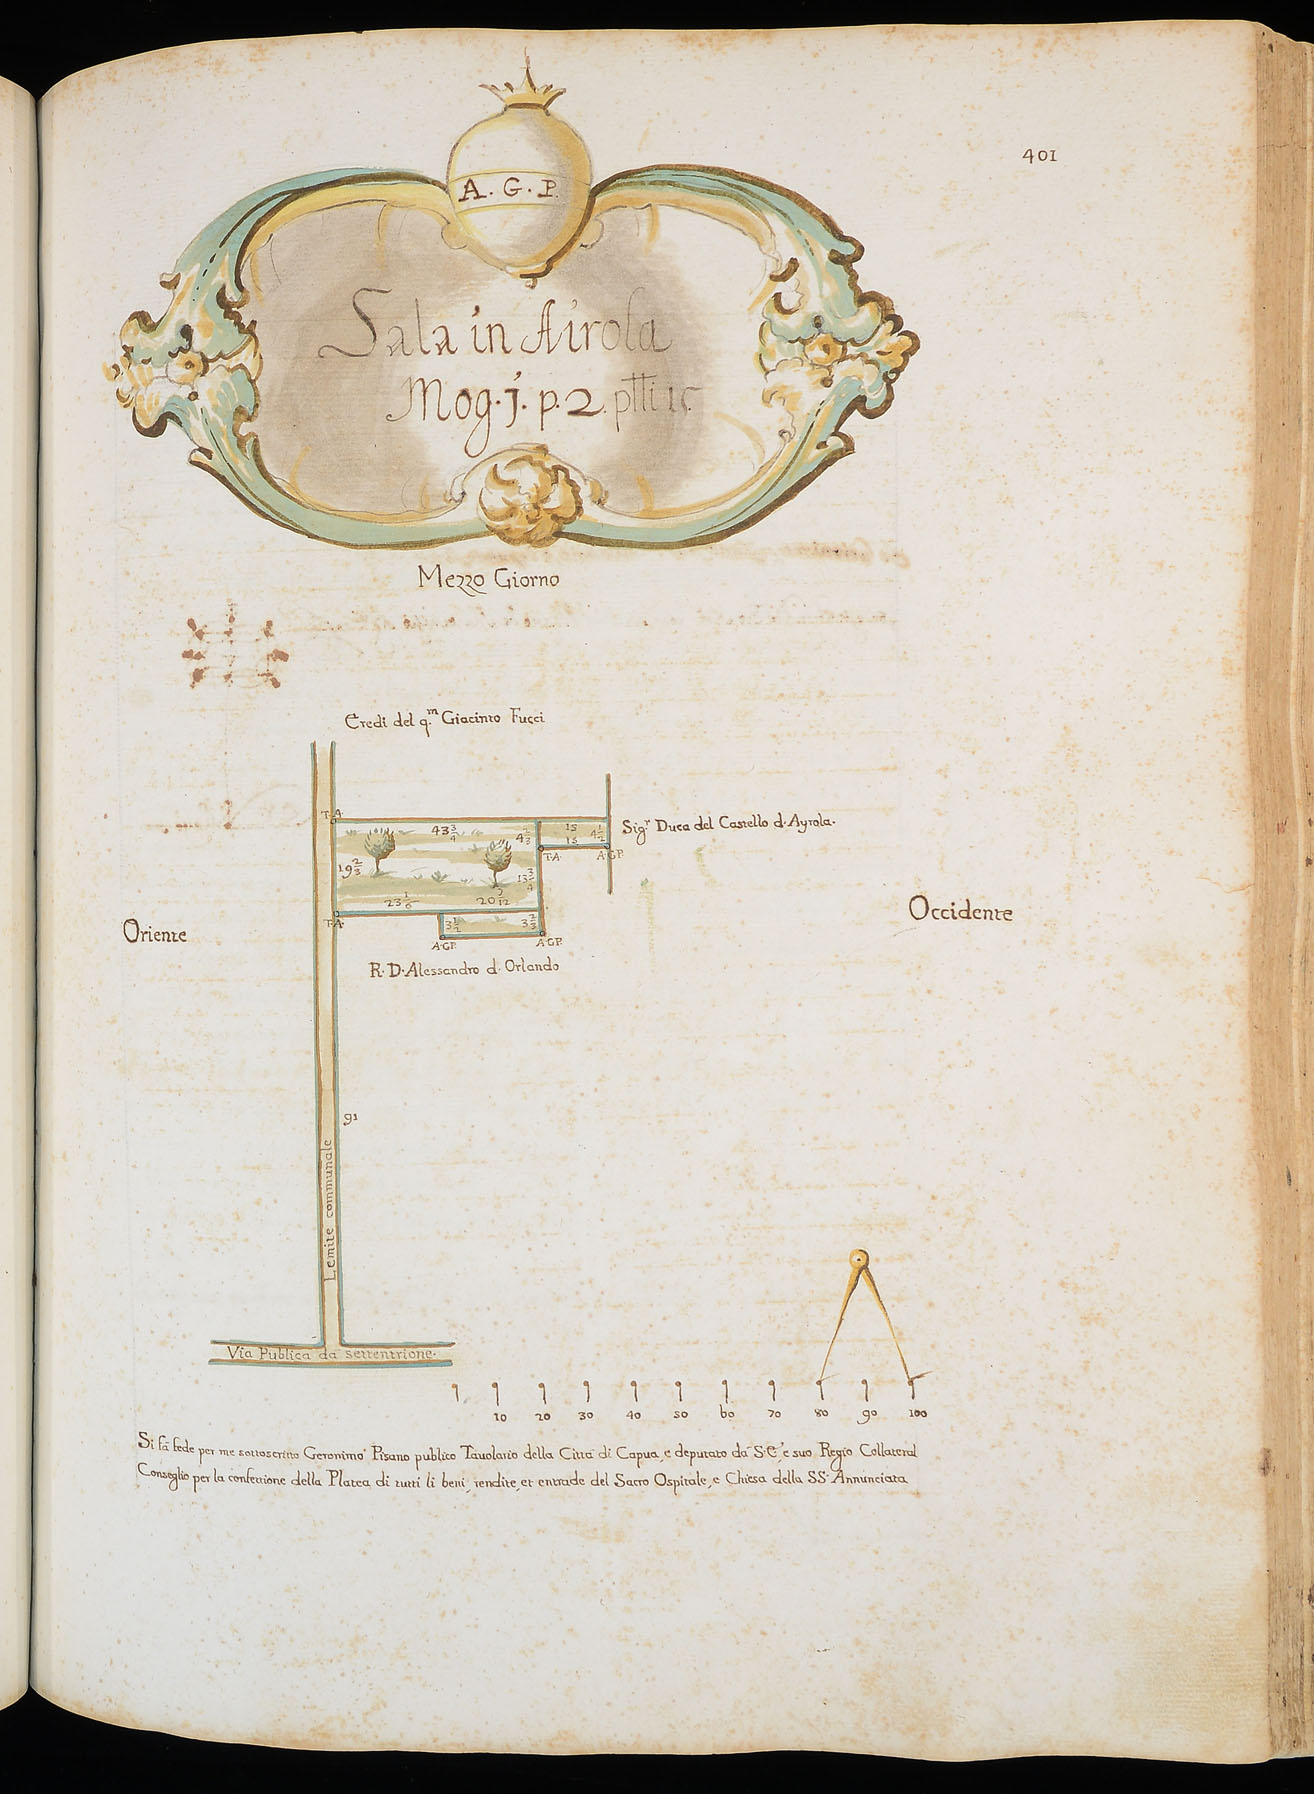 401
A. G. P.
Sala in Airola
Mog. j. p. 2. ptti 15
Mezzo Giorno
Eredi del q.m Giacinto Fucci
T.A.
43 3/4
4 2/3
15
15
4 1/2
Sigr Duca del Castello d'Ayrola.
T.A. A.G.P.
19 2/3
13 3/4
23 1/6
20 /12
T.A.
3 1/2
3 2/3
A.G.P.
A.G.P.
Oriente
Occidente
R. D. Alessandro d'Orlando
91
Lemite communale
Via Publica da settentrione.
10 20 30 40 50 60 70 80 90 100
Si fà fede per me sottoscritto Geronimo Pisano publico Tavolario della Città di Capua, e deputato da S.E., e suo Regio Collateral
Conseglio per la confettione della Platea di tutti li beni, rendite, et entrade del Sacro Ospitale, e Chiesa della SS. Annunciata